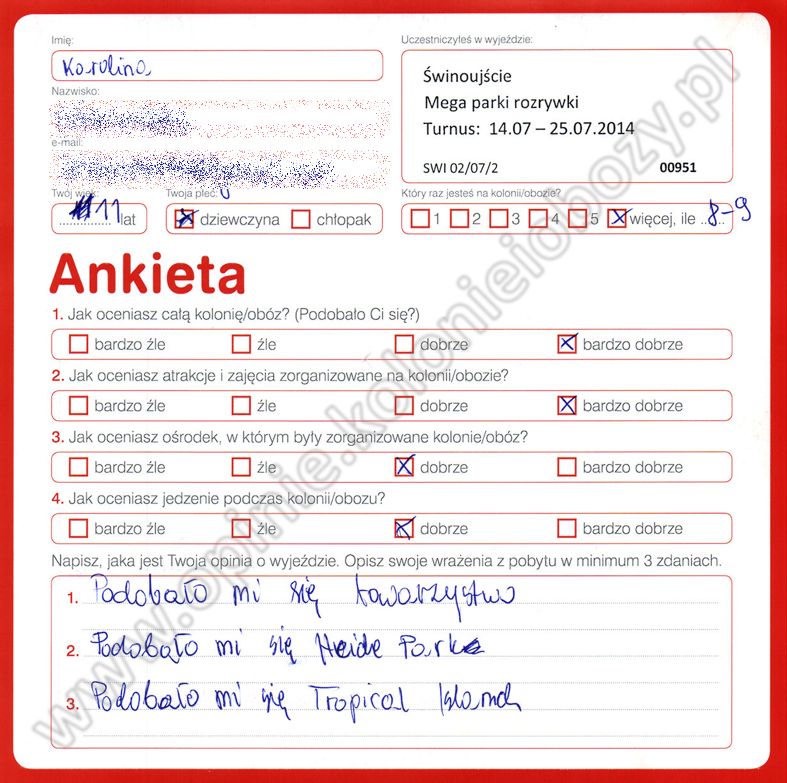 Imię:
Karolina
Uczestniczyłeś w wyjeździe:
Świnoujście
Mega parki rozrywki
Turnus: 14.07 – 25.07.2014
SWI 02/07/2 00951
Nazwisko:
e-mail:
Twój wiek:
11 lat
Twoja płeć:
dziewczyna chłopak
Który raz jesteś na kolonii/obozie?
1 2 3 4 5 więcej, ile 8-9
Ankieta
1. Jak oceniasz całą kolonię/obóz? (Podobało Ci się?)
bardzo źle źle dobrze bardzo dobrze
2. Jak oceniasz atrakcje i zajęcia zorganizowane na kolonii/obozie?
bardzo źle źle dobrze bardzo dobrze
3. Jak oceniasz ośrodek, w którym były zorganizowane kolonie/obóz?
bardzo źle źle dobrze bardzo dobrze
4. Jak oceniasz jedzenie podczas kolonii/obozu?
bardzo źle źle dobrze bardzo dobrze
Napisz, jaka jest Twoja opinia o wyjeździe. Opisz swoje wrażenia z pobytu w minimum 3 zdaniach.
1. Podobało mi się towarzystwo
2. Podobało mi się Heide Park
3. Podobało mi się Tropical Island
www.opinie.kolonieiobozy.pl